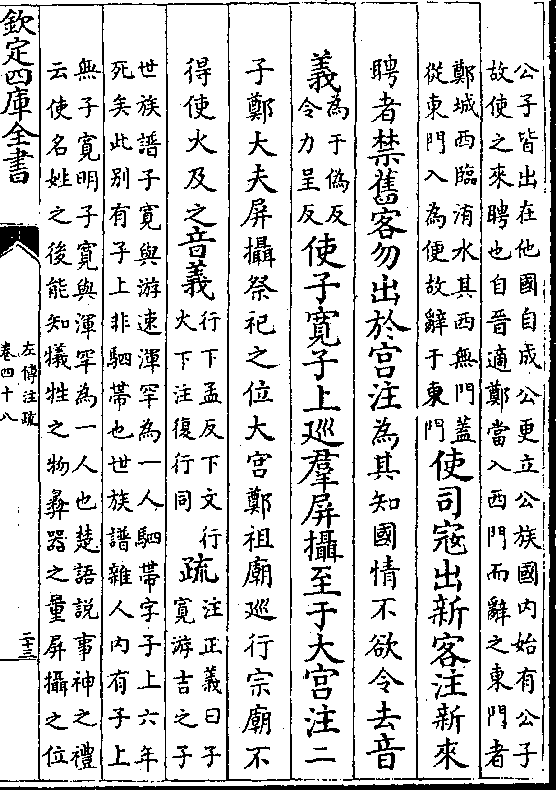 公子皆出在他國自成公更立公族國内始有公子
故使之來聘也自晉適鄭當入西門而辭之東門者
鄭城西臨洧水其西無門蓋
從東門入為便故辭于東門
使司寇出新客注新來
聘者禁舊客勿出於宫注為其知國情不欲令去音
義
為于偽反
令力呈反
使子寛子上巡羣屏攝至于大宫注二
子鄭大夫屏攝祭祀之位大宫鄭祖廟巡行宗廟不
得使火及之音義
行下孟反下文行
火下注復行同
疏
注正義曰子
寛游吉之子
世族譜子寛與游速渾罕為一人駟帯字子上六年
死矣此别有子上非駟帯也世族譜雜人内有子上
無子寛明子寛與渾罕為一人也楚語説事神之禮
云使名姓之後能知犧牲之物彝器之量屏攝之位
欽定四庫全書
左傳注疏
卷四十八
二十三